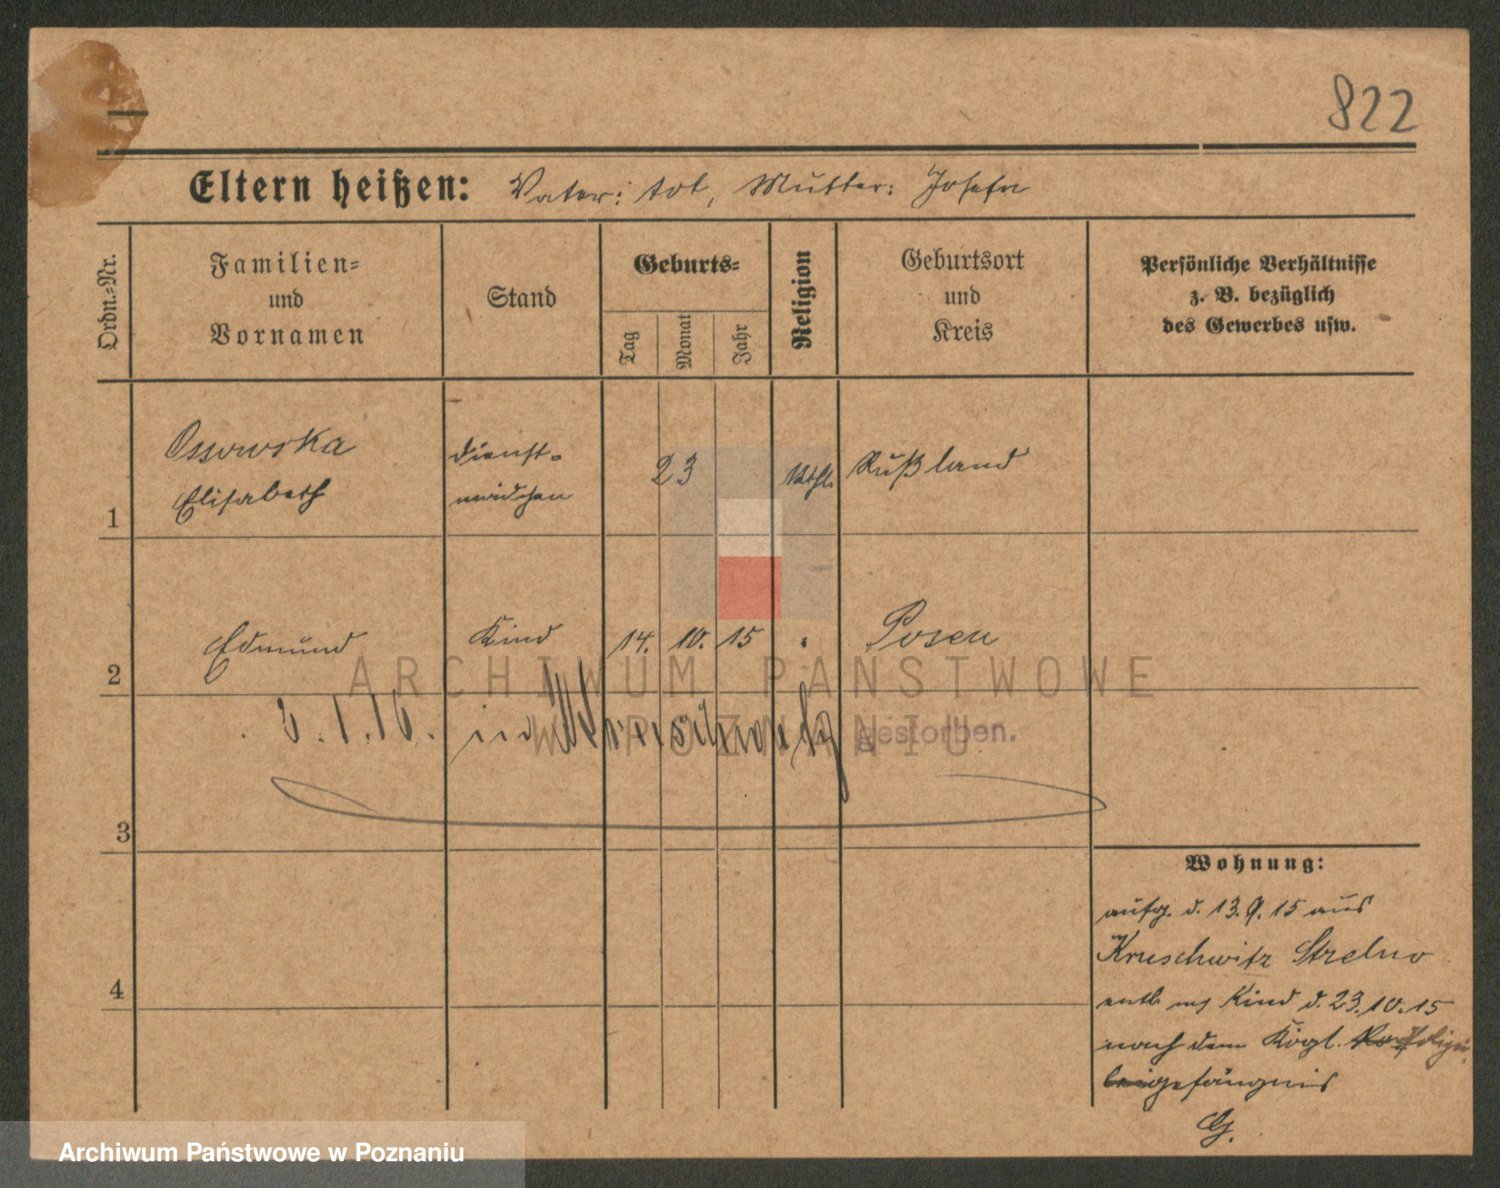 822
Eltern heißen: Vater: tot, Mutter: Josefa
Ordn.=Nr.
Familien=
und
Vornamen
Stand
Geburts=
Tag
Monat
Jahr
Religion
Geburtsort
und
Kreis
Persönliche Verhältnisse
z. B. bezüglich
des Gewerbes usw.
1
Ossowska
Elisabeth
Dienst=
mädchen
23
kthl.
Rußland
2
Edmund
Kind
14. 10. 15
"
Posen
ARCHIWUM PAŃSTWOWE
W POZNANIU
3
3.1.16. in Kruschwitz gestorben.
4
Wohnung:
aufg. d. 13.9.15 aus
Kruschwitz Strelno
entl. mit Kind d. 23.10.15
nach dem Kögl. Polizei
gefängnis
G.
Archiwum Państwowe w Poznaniu